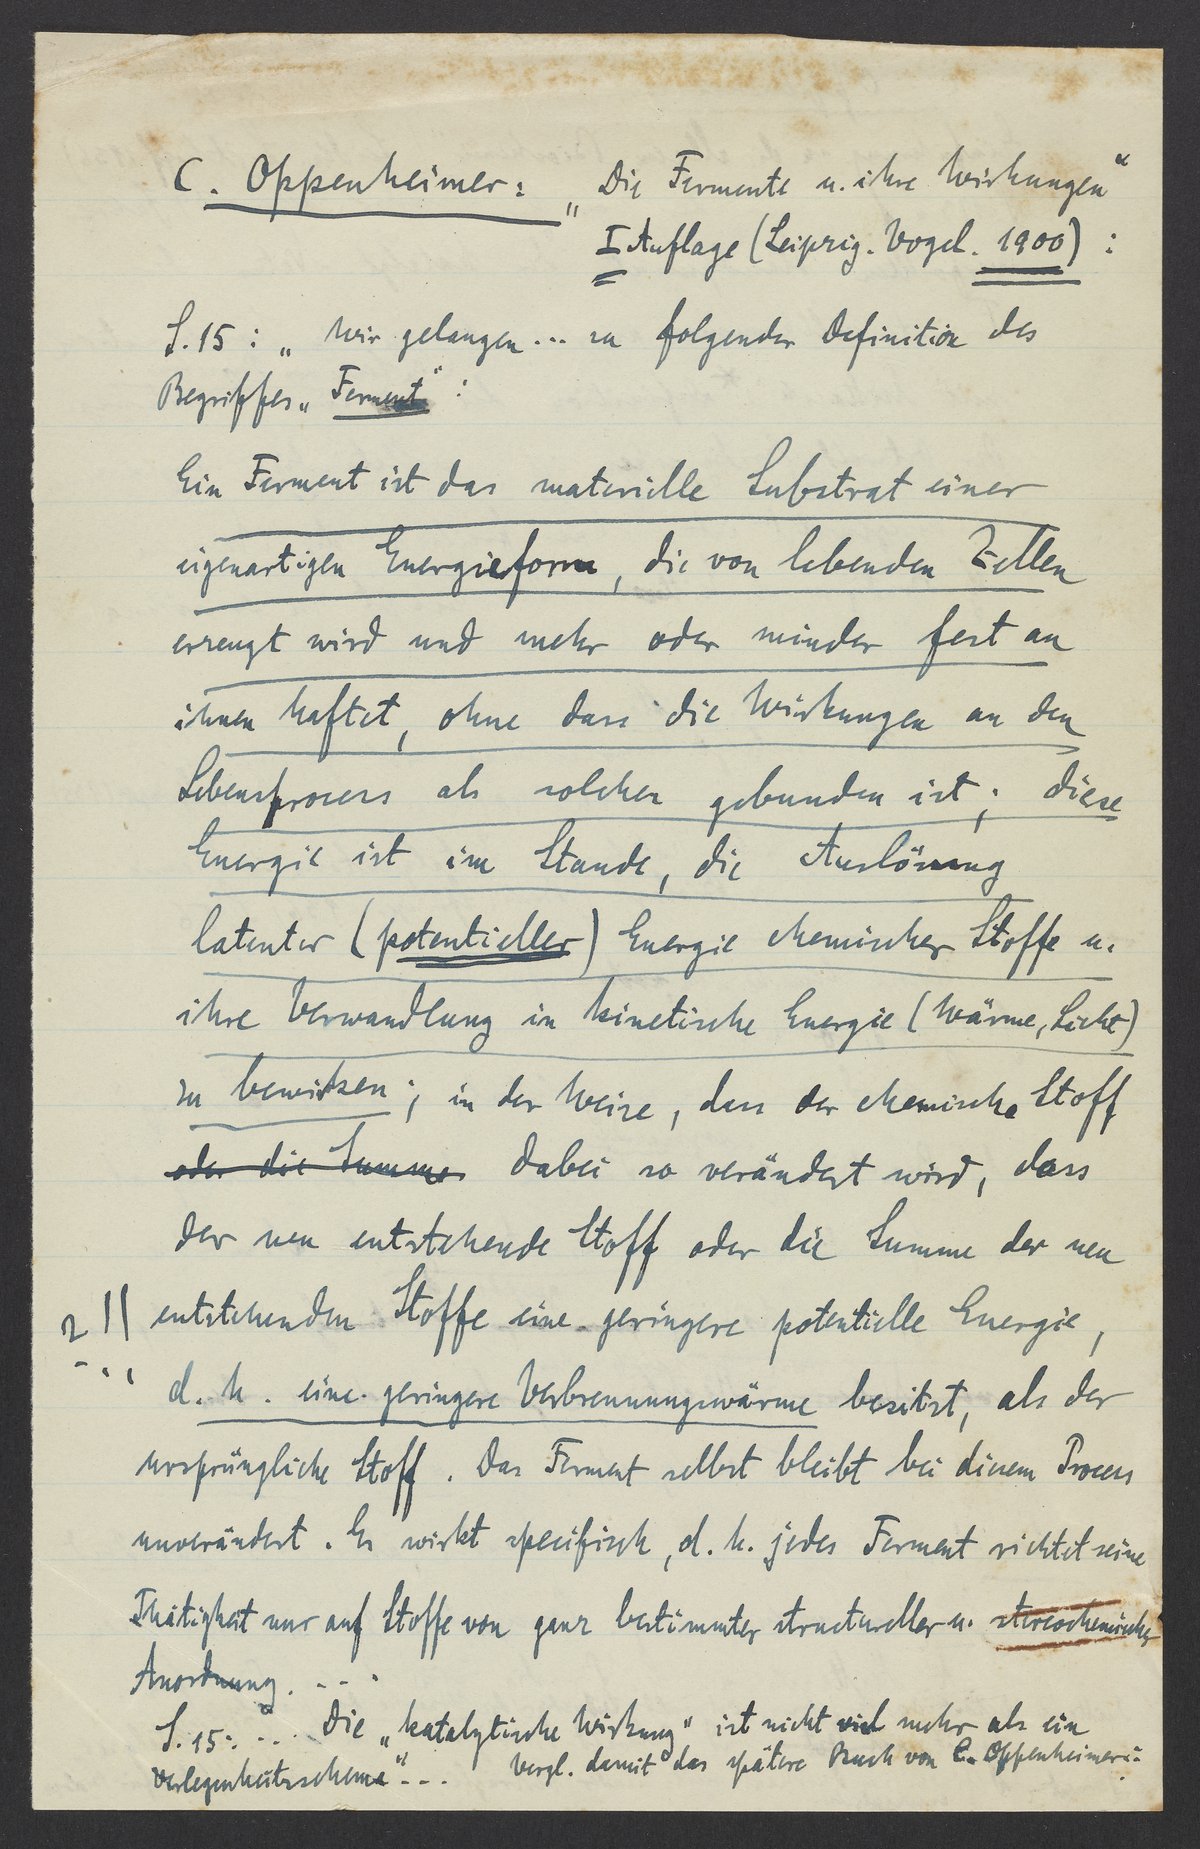 C. Oppenheimer: „Die Fermente u. ihre Wirkungen“
I Auflage (Leipzig. Vogel. 1900) :
S. 15 : „Wir gelangen ... zu folgender Definition des
Begriffes „Ferment“ :
Ein Ferment ist das materielle Substrat einer
eigenartigen Energieform, die von lebenden Zellen
erzeugt wird und mehr oder minder fest an
ihnen haftet, ohne dass die Wirkungen an den
Lebensprocess als solchen gebunden ist; diese
Energie ist im Stande, die Auslösung
latenter (potentieller) Energie chemischer Stoffe u.
ihre Verwandlung in kinetische Energie (Wärme, Licht)
zu bewirken; in der Weise, dass der chemische Stoff
oder die Summe dabei so verändert wird, dass
der neu entstehende Stoff oder die Summe der neu
entstehenden Stoffe eine geringere potentielle Energie,
d. h. eine geringere Verbrennungswärme besitzt, als der
ursprüngliche Stoff. Das Ferment selbst bleibt bei diesem Process
unverändert. Es wirkt specifisch, d. h. jedes Ferment richtet seine
Thätigkeit nur auf Stoffe von ganz bestimmter structureller u. stereochemischer
Anordnung. ...
S. 15: ... Die „katalytische Wirkung“ ist nicht viel mehr als ein
Verlegenheitsschema“ ... Vergl. damit das spätere Buch von C. Oppenheimer: